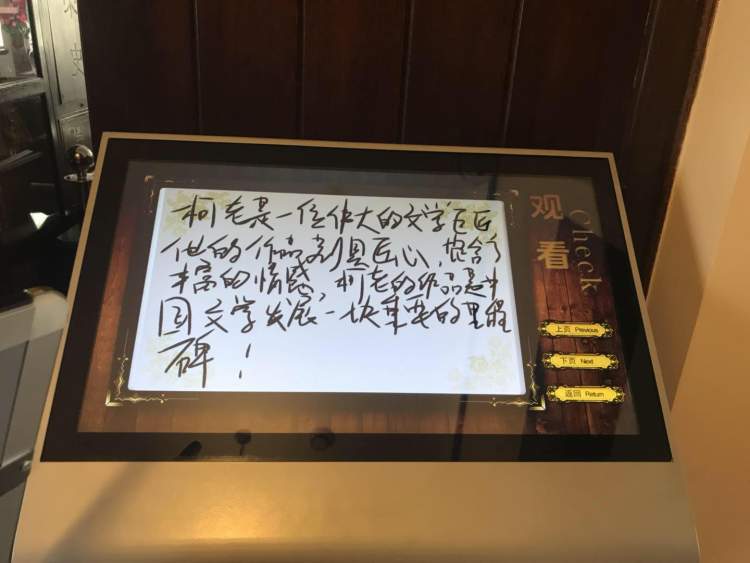 柯老是一位伟大的文学巨匠
他的作品别具匠心，饱含了
丰富的情感，柯老的作品是中
国文学发展一块重要的里程
碑！
观看
Check
上页 Previous
下页 Next
返回 Return